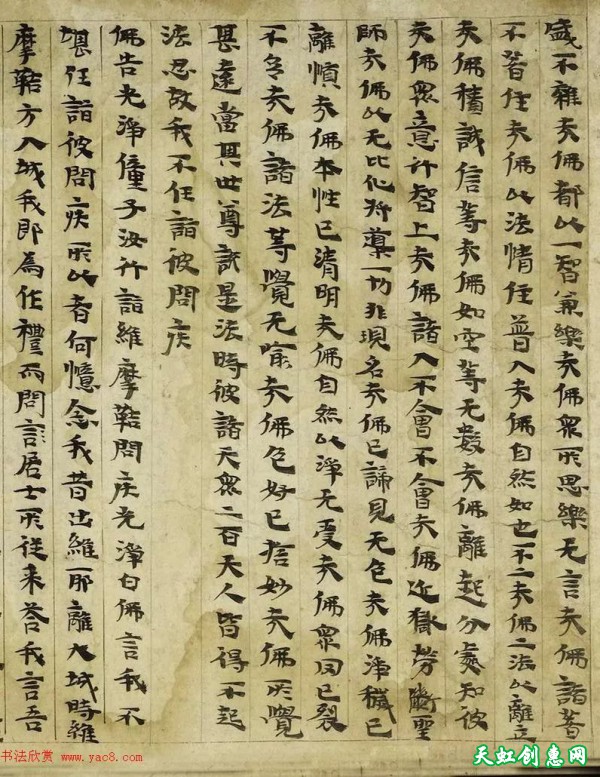 盛不雜夫佛都此一智兼樂夫佛眾所思樂无言夫佛諸著
不著住夫佛此法情住普入夫佛自然如也不二夫佛二法此離立
夫佛積誠信等夫佛如空等无數夫佛離起分處知彼
夫佛眾意行智上夫佛諸入不會不會夫佛近獄勞斷聖
師夫佛此无比化行藁一切非現名夫佛已諦見无色夫佛淨穢已
離慎夫佛本性已清明夫佛自然此淨无受夫佛眾罔已裂
不多夫佛諸法等覺无喻夫佛色好已捨妙夫佛所覺
甚遠當其世尊說是法時彼諸天眾二百天人皆得不起
法忍故我不任詣彼問疾
佛告光淨僮子汝行詣維摩詰問疾光淨白佛言我不
堪任詣彼問疾所以者何憶念我昔出維耶離大城時維
摩詰方入城我即為作禮而問言居士所從來答我言吾
书法欣赏 www.yac8.com
天虹创惠网